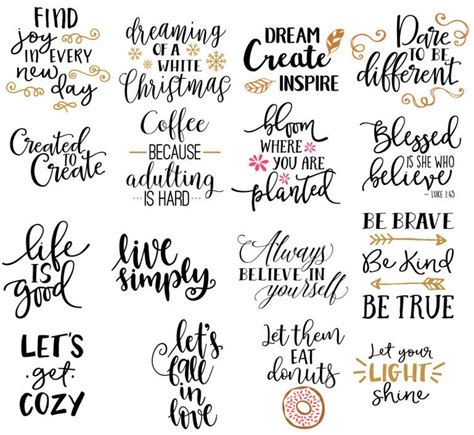 FIND
joy
IN EVERY
new
day
dreaming
OF A
WHITE
Christmas
DREAM
Create
INSPIRE
Dare
TO BE
different
Created
TO
Create
Coffee
BECAUSE
adulting
IS HARD
bloom
WHERE
YOU ARE
planted
Blessed
IS SHE WHO
believe
— LUKE 1:45
life
IS
good
live
simply
Always
BELIEVE IN
yourself
BE BRAVE
Be Kind
BE TRUE
LET'S
get
COZY
let's
fall
in
love
Let them
EAT
donuts
Let your
LIGHT
shine